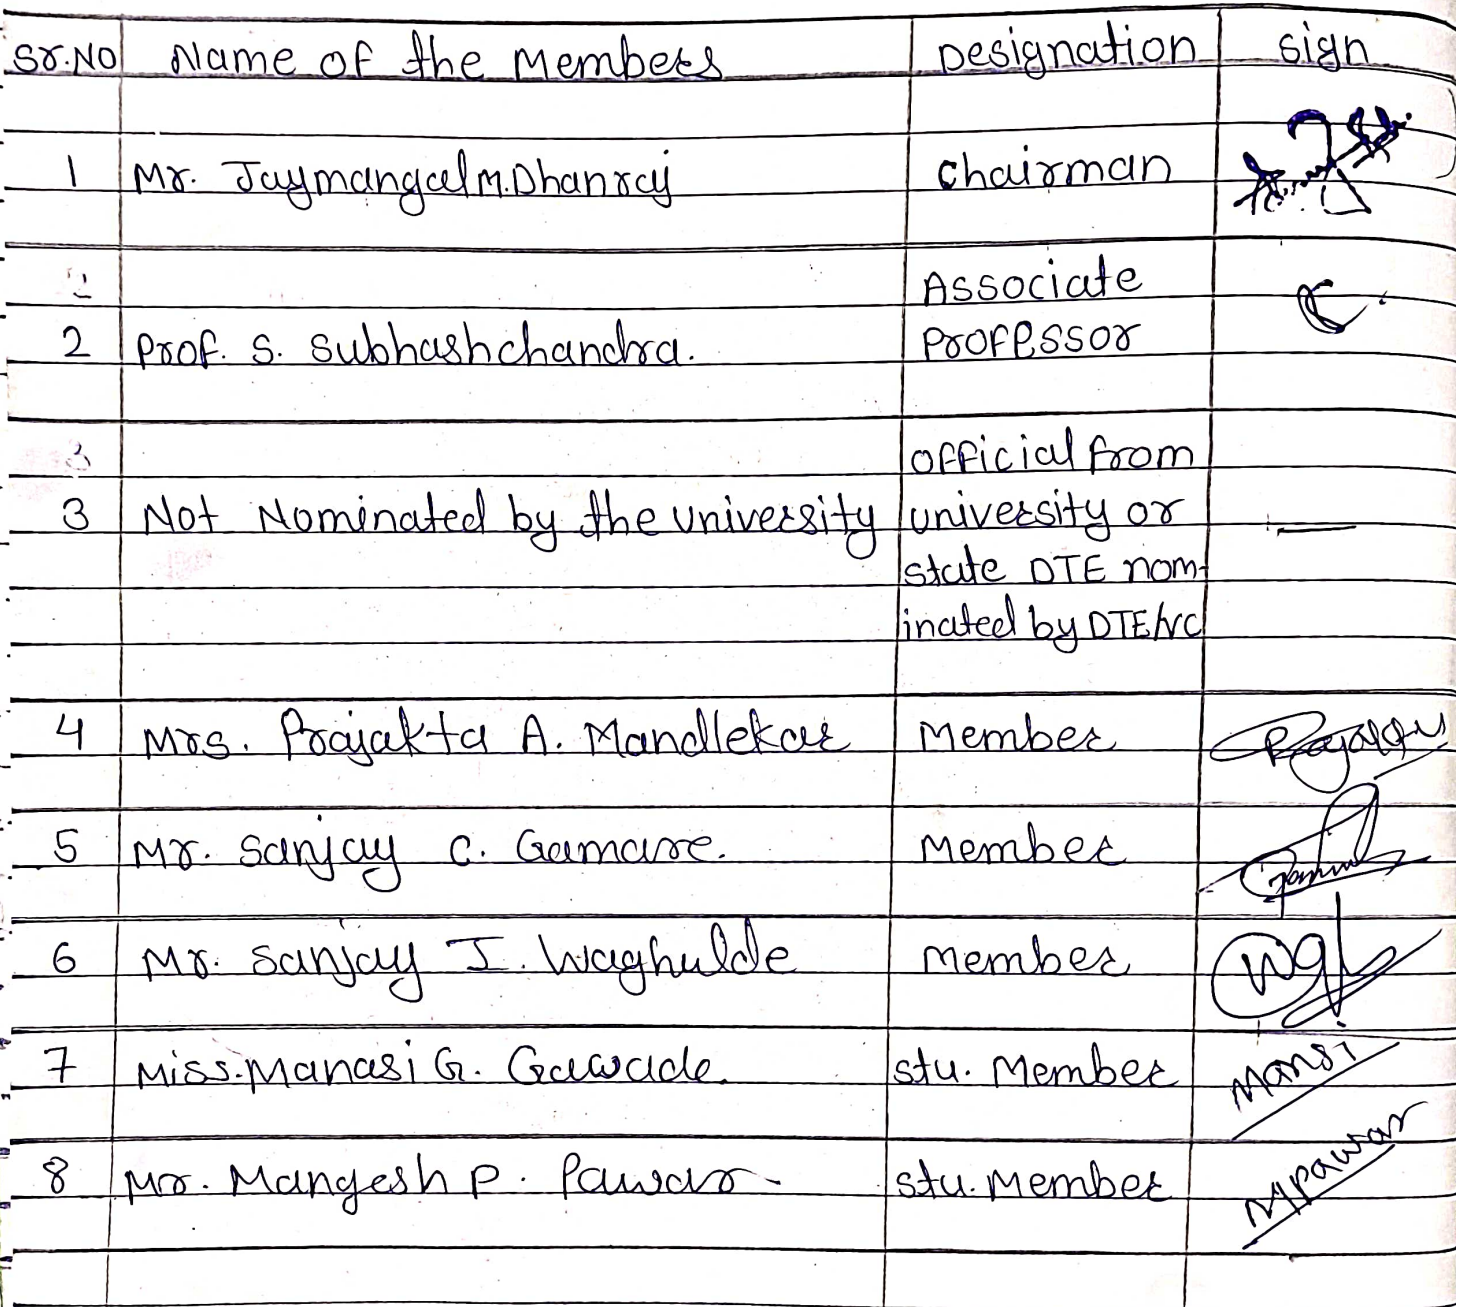 Sr.No Name of the Members Designation sign
1 Mr. Jaymangal M. Dhanraj chairman
Associate
2 Prof. S. Subhashchandra. Professor
3 official from
3 Not Nominated by the university university or
state DTE nom-
inated by DTE/VC
4 Mrs. Prajakta A. Mandlekar Member
5 Mr. Sanjay C. Gamare. Member
6 Mr. Sanjay I. Waghulde Member
7 Miss. Manasi G. Gawade. stu. Member Mansi
8 Mr. Mangesh P. Pawar. stu. Member Mpawar